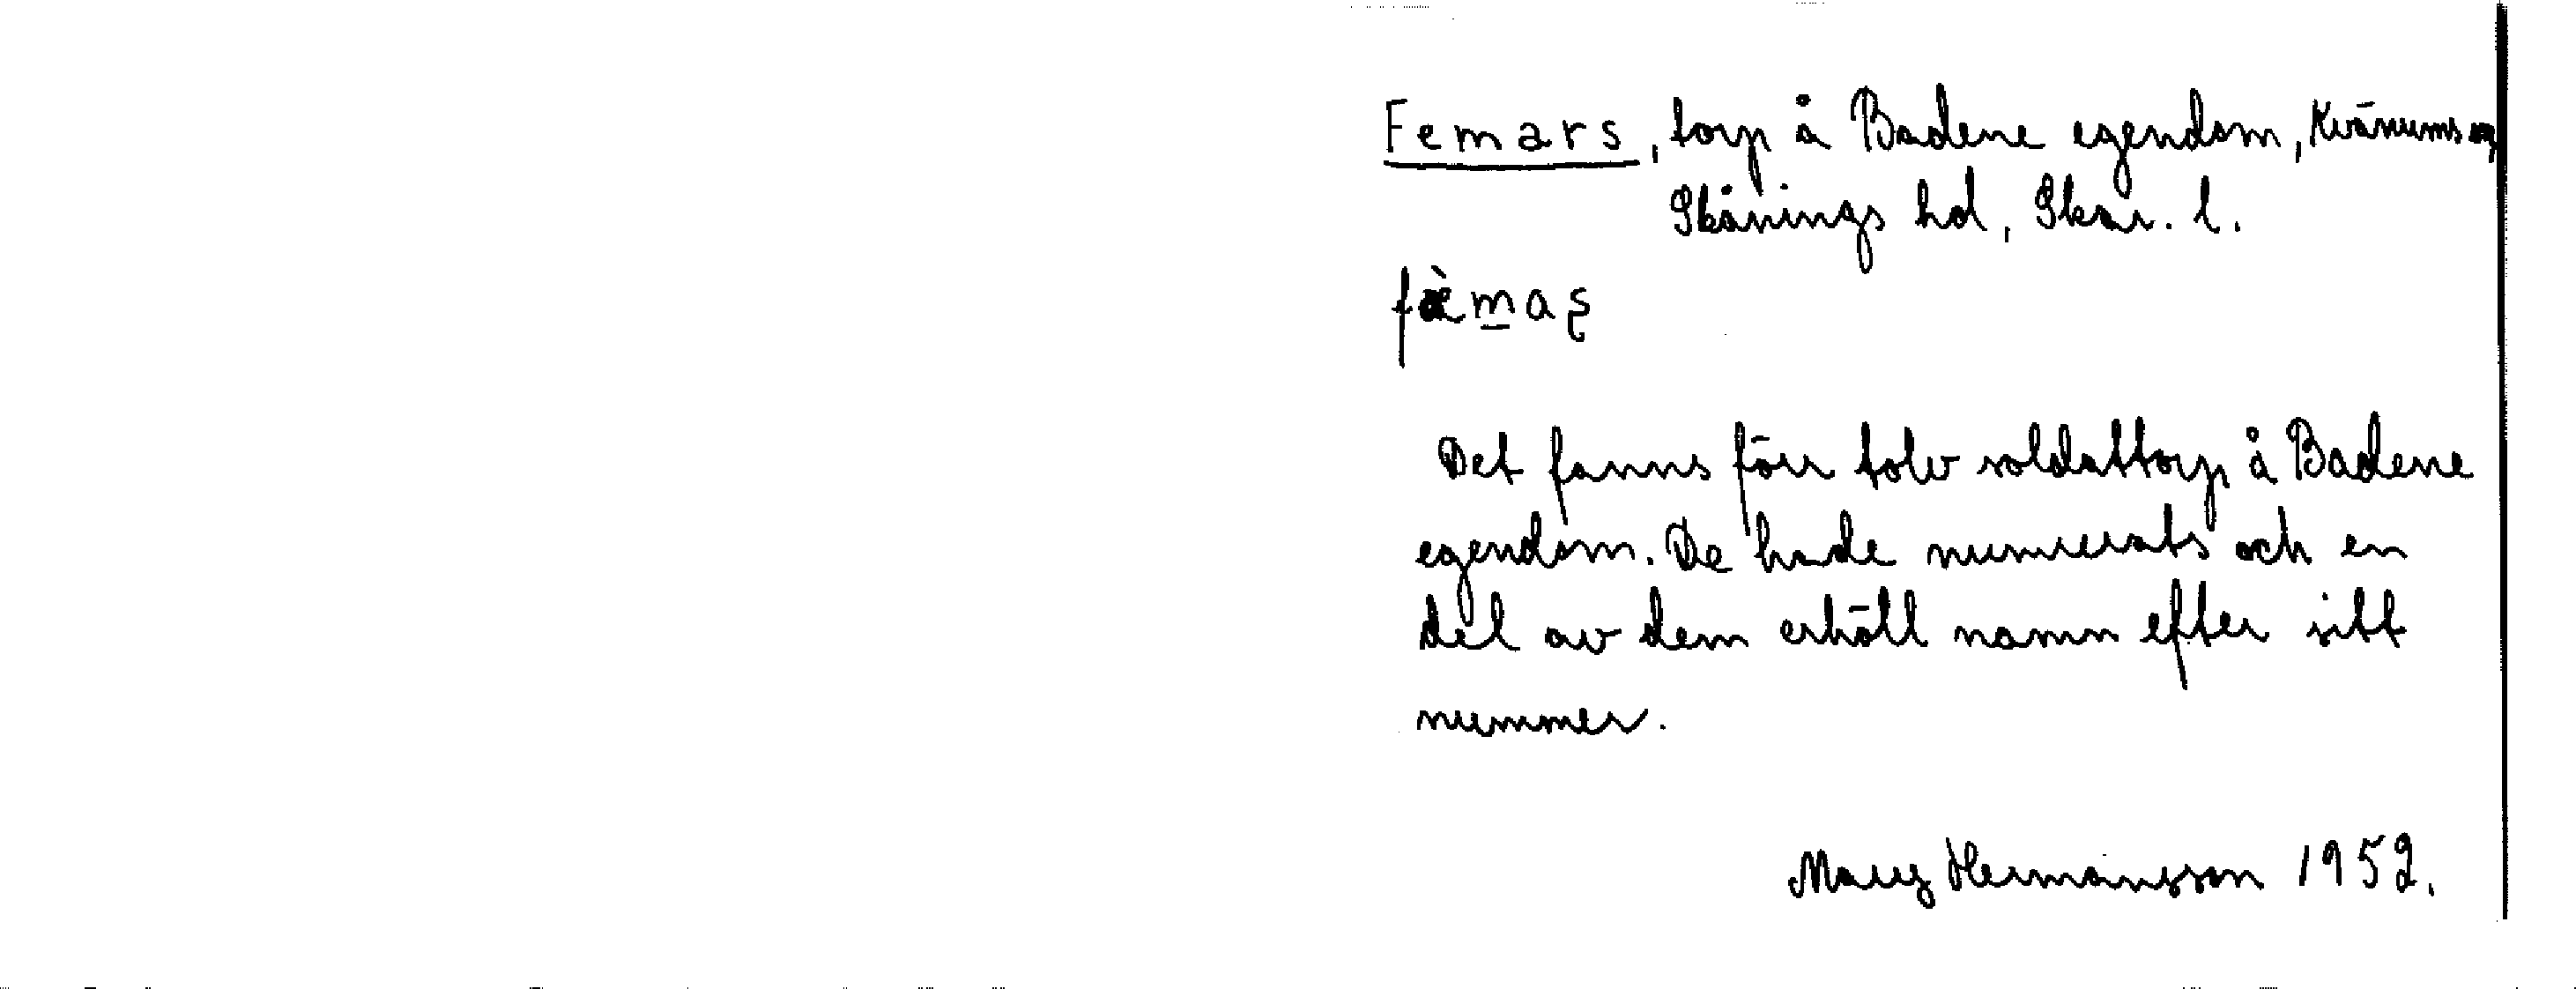 Femars, torp å Badene egendom, Kvänums sn
Skånings hd, Skar. l.
fæ̀mas̨
Det fanns förr tolv soldattorp å Badene
egendom. De hade numrerats och en
del av dem erhöll namn efter sitt
nummer.
Mary Hermansson 1952.